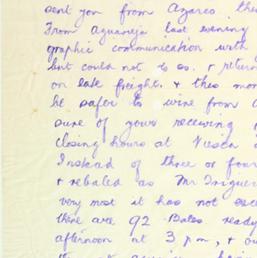 sent you from Azares. the
From Aguaneja last evening
graphic communication with
but could not do so. & return
on late freight. & this mor
be safer to wire from
sure of yours receiving
closing hours at
Instead of three or four
& rebaled as Mr Triguer
very most it has not
there are 92 Bales ready
afternoon at 3 p.m, & ou